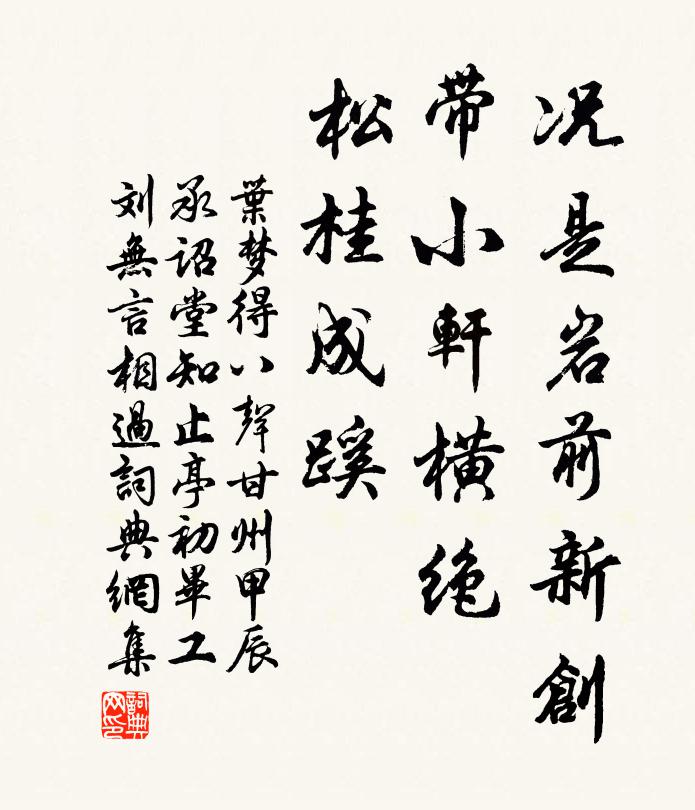 况是岩前新創
带小軒橫绝
松桂成蹊
葉梦得八聲甘州甲辰
承诏堂知止亭初畢工
刘無言相過詞典網集
詞典网印